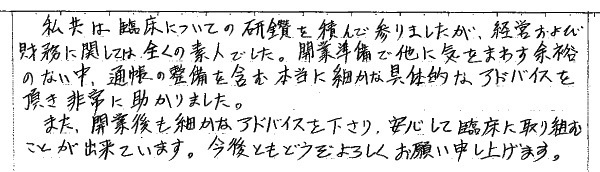 私共は臨床についての研鑽を積んで参りましたが、経営および
財務に関しては全くの素人でした。開業準備で他に気をまわす余裕
のない中、通帳の整備を含む本当に細かな具体的なアドバイスを
頂き非常に助かりました。
また、開業後も細かなアドバイスを下さり、安心して臨床に取り組む
ことが出来ています。今後ともどうぞよろしくお願い申し上げます。